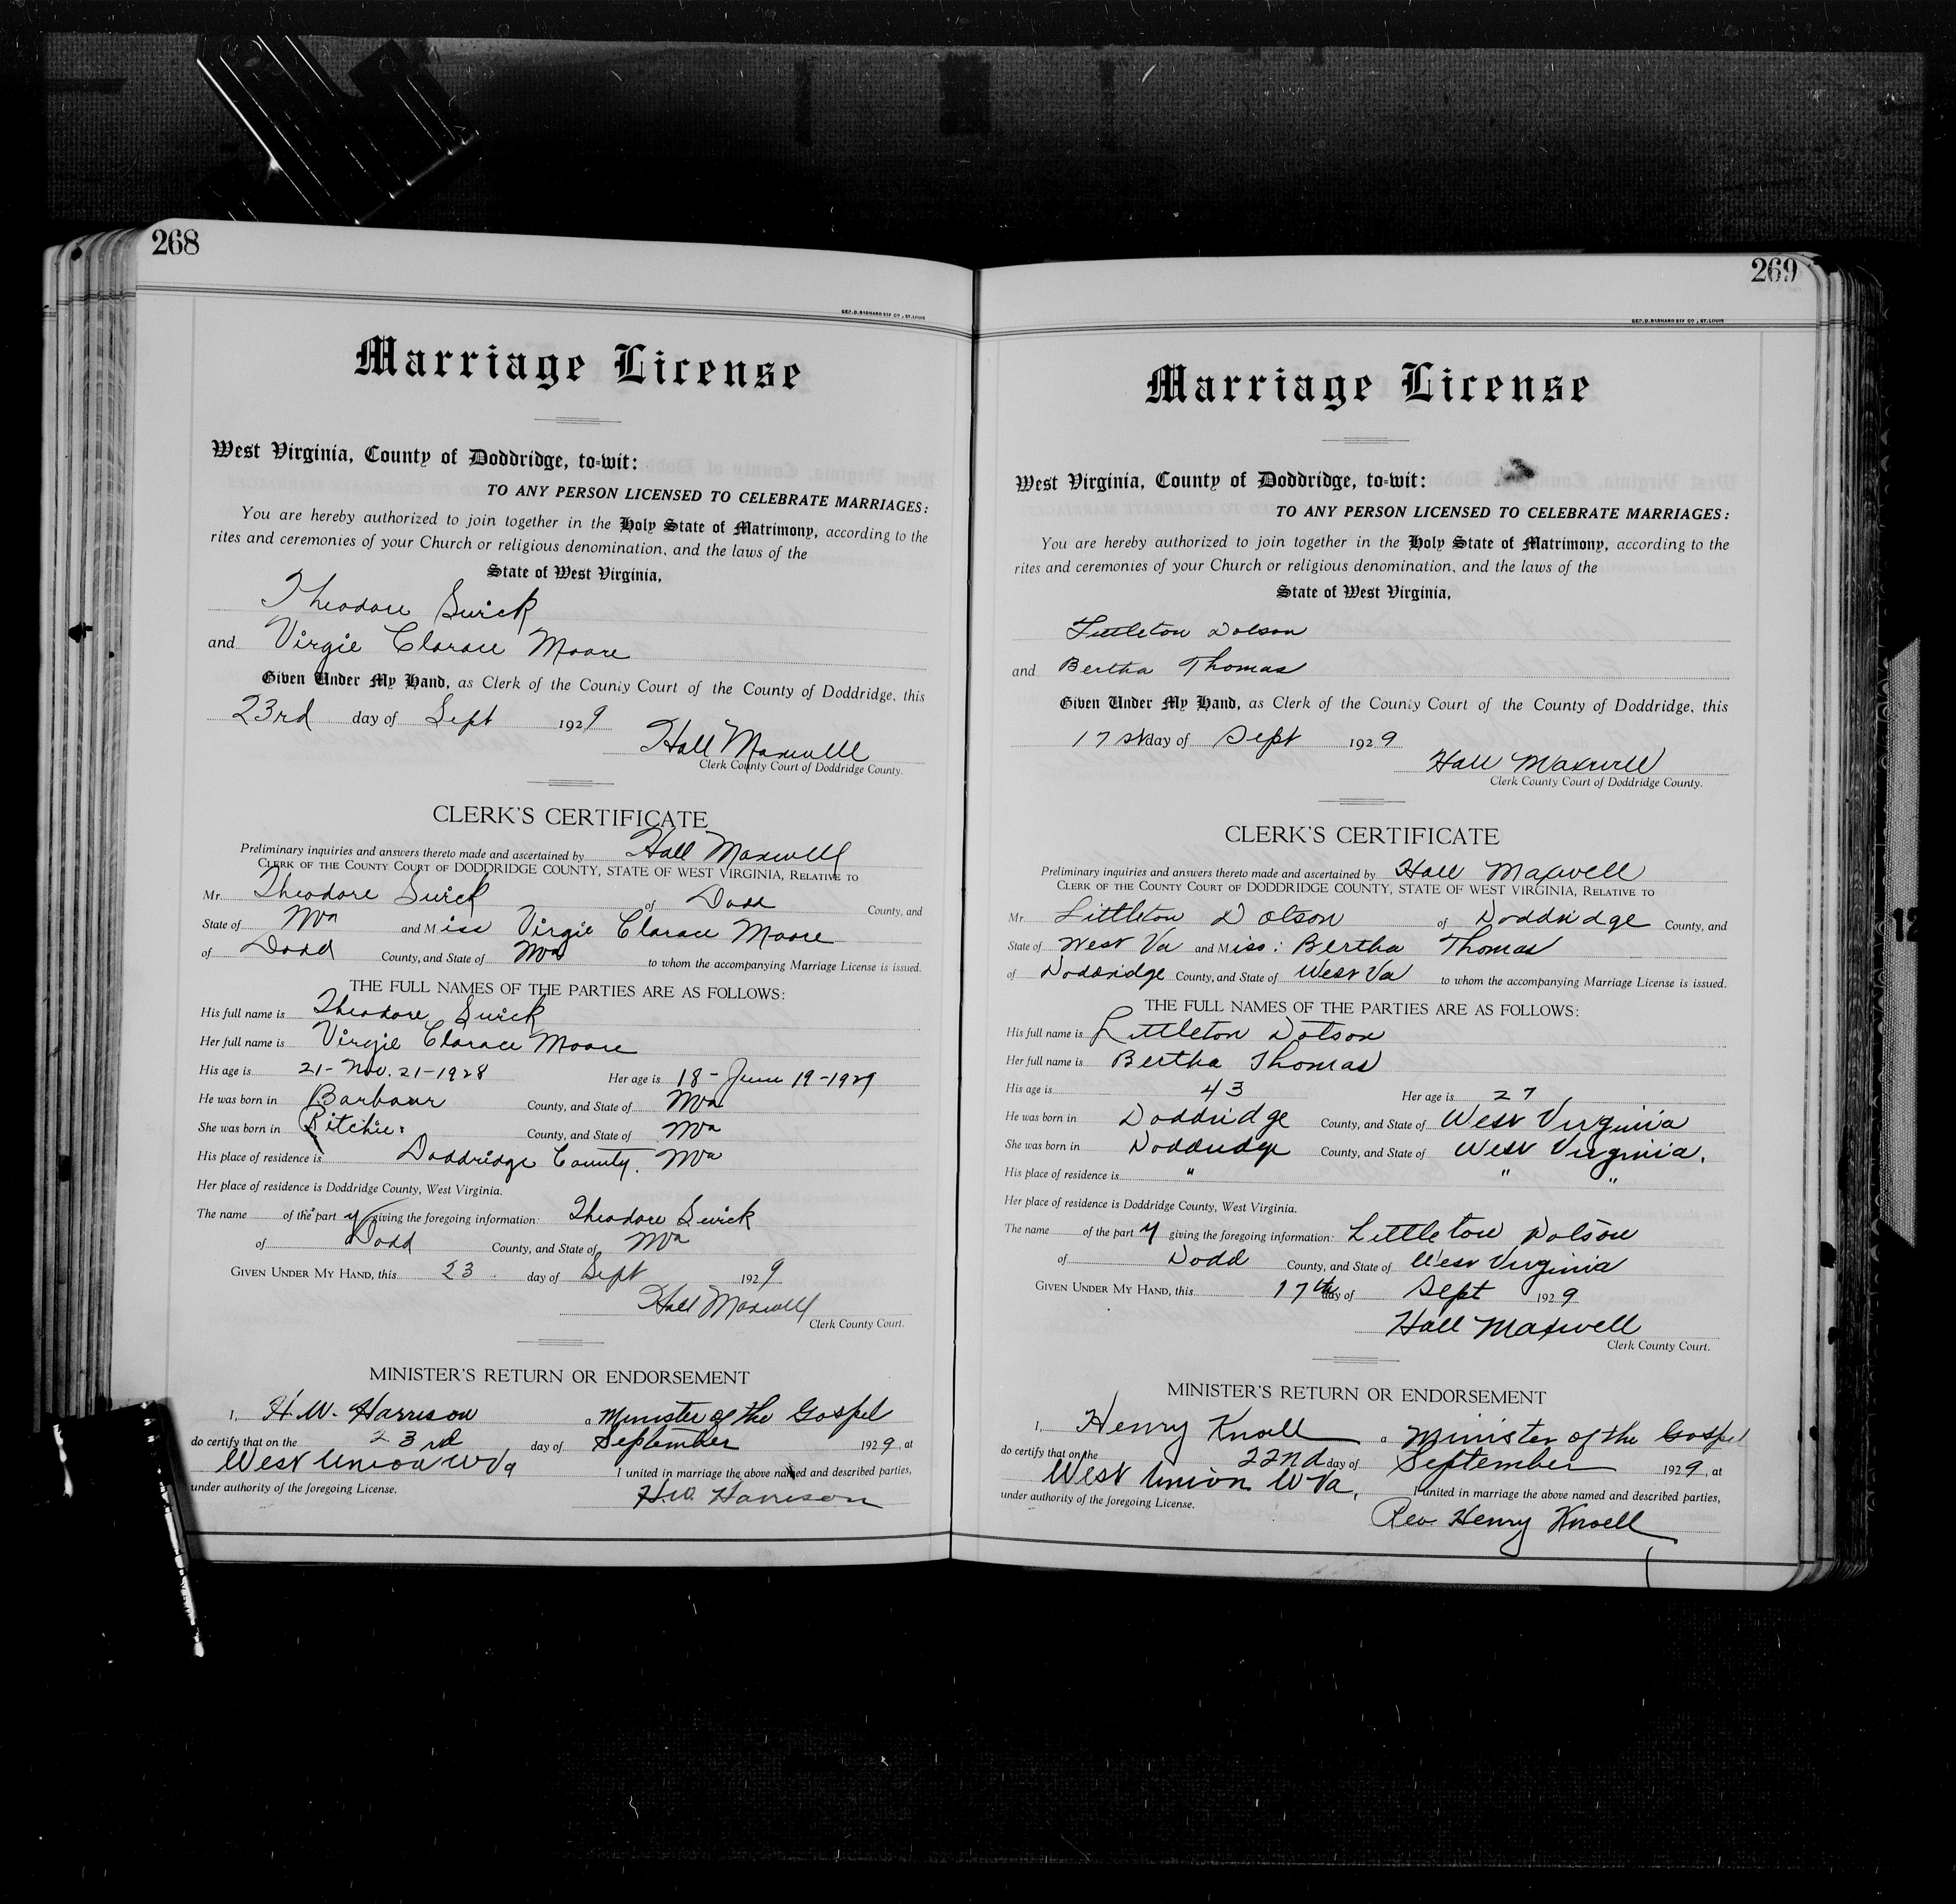 268
GEO. D. BARNARD STA. CO., ST. LOUIS
Marriage License
West Virginia, County of Doddridge, to-wit:
TO ANY PERSON LICENSED TO CELEBRATE MARRIAGES:
You are hereby authorized to join together in the Holy State of Matrimony, according to the
rites and ceremonies of your Church or religious denomination, and the laws of the
State of West Virginia,
Theodore Swick
and Virgie Clarace Moore
Given Under My Hand, as Clerk of the County Court of the County of Doddridge, this
23rd day of Sept 1929
Hall Maxwell
Clerk County Court of Doddridge County.
CLERK'S CERTIFICATE
Preliminary inquiries and answers thereto made and ascertained by Hall Maxwell
CLERK OF THE COUNTY COURT OF DODDRIDGE COUNTY, STATE OF WEST VIRGINIA, RELATIVE TO
Mr. Theodore Swick of Dodd County, and
State of Wva and Miss Virgie Clarace Moore
of Dodd County, and State of Wva to whom the accompanying Marriage License is issued.
THE FULL NAMES OF THE PARTIES ARE AS FOLLOWS:
His full name is Theodore Swick
Her full name is Virgie Clarace Moore
His age is 21- Nov. 21-1928 Her age is 18- June 19-1929
He was born in Barbour County, and State of Wva
She was born in Ritchie County, and State of Wva
His place of residence is Doddridge County, Wva
Her place of residence is Doddridge County, West Virginia.
The name of the party giving the foregoing information: Theodore Swick
of Dodd County, and State of Wva
GIVEN UNDER MY HAND, this 23 day of Sept 1929
Hall Maxwell
Clerk County Court.
MINISTER'S RETURN OR ENDORSEMENT
I, H. W. Harrison a Minister of the Gospel
do certify that on the 23rd day of September 1929, at
West Union WVa I united in marriage the above named and described parties,
under authority of the foregoing License. H.W. Harrison
269
GEO. D. BARNARD STA. CO., ST. LOUIS
Marriage License
West Virginia, County of Doddridge, to-wit:
TO ANY PERSON LICENSED TO CELEBRATE MARRIAGES:
You are hereby authorized to join together in the Holy State of Matrimony, according to the
rites and ceremonies of your Church or religious denomination, and the laws of the
State of West Virginia,
Littleton Dotson
and Bertha Thomas
Given Under My Hand, as Clerk of the County Court of the County of Doddridge, this
17st day of Sept 1929
Hall Maxwell
Clerk County Court of Doddridge County.
CLERK'S CERTIFICATE
Preliminary inquiries and answers thereto made and ascertained by Hall Maxwell
CLERK OF THE COUNTY COURT OF DODDRIDGE COUNTY, STATE OF WEST VIRGINIA, RELATIVE TO
Mr. Littleton Dotson of Doddridge County, and
State of West Va and Miss: Bertha Thomas
of Doddridge County, and State of West Va to whom the accompanying Marriage License is issued.
THE FULL NAMES OF THE PARTIES ARE AS FOLLOWS:
His full name is Littleton Dotson
Her full name is Bertha Thomas
His age is 43 Her age is 27
He was born in Doddridge County, and State of West Virginia
She was born in Doddridge County, and State of West Virginia.
His place of residence is " " "
Her place of residence is Doddridge County, West Virginia.
The name of the party giving the foregoing information: Littleton Dotson
of Dodd County, and State of West Virginia
GIVEN UNDER MY HAND, this 17th day of Sept 1929
Hall Maxwell
Clerk County Court.
MINISTER'S RETURN OR ENDORSEMENT
I, Henry Knoll a Minister of the Gospel
do certify that on the 22nd day of September 1929, at
West Union WVa, I united in marriage the above named and described parties,
under authority of the foregoing License.
Rev. Henry Knoell
12